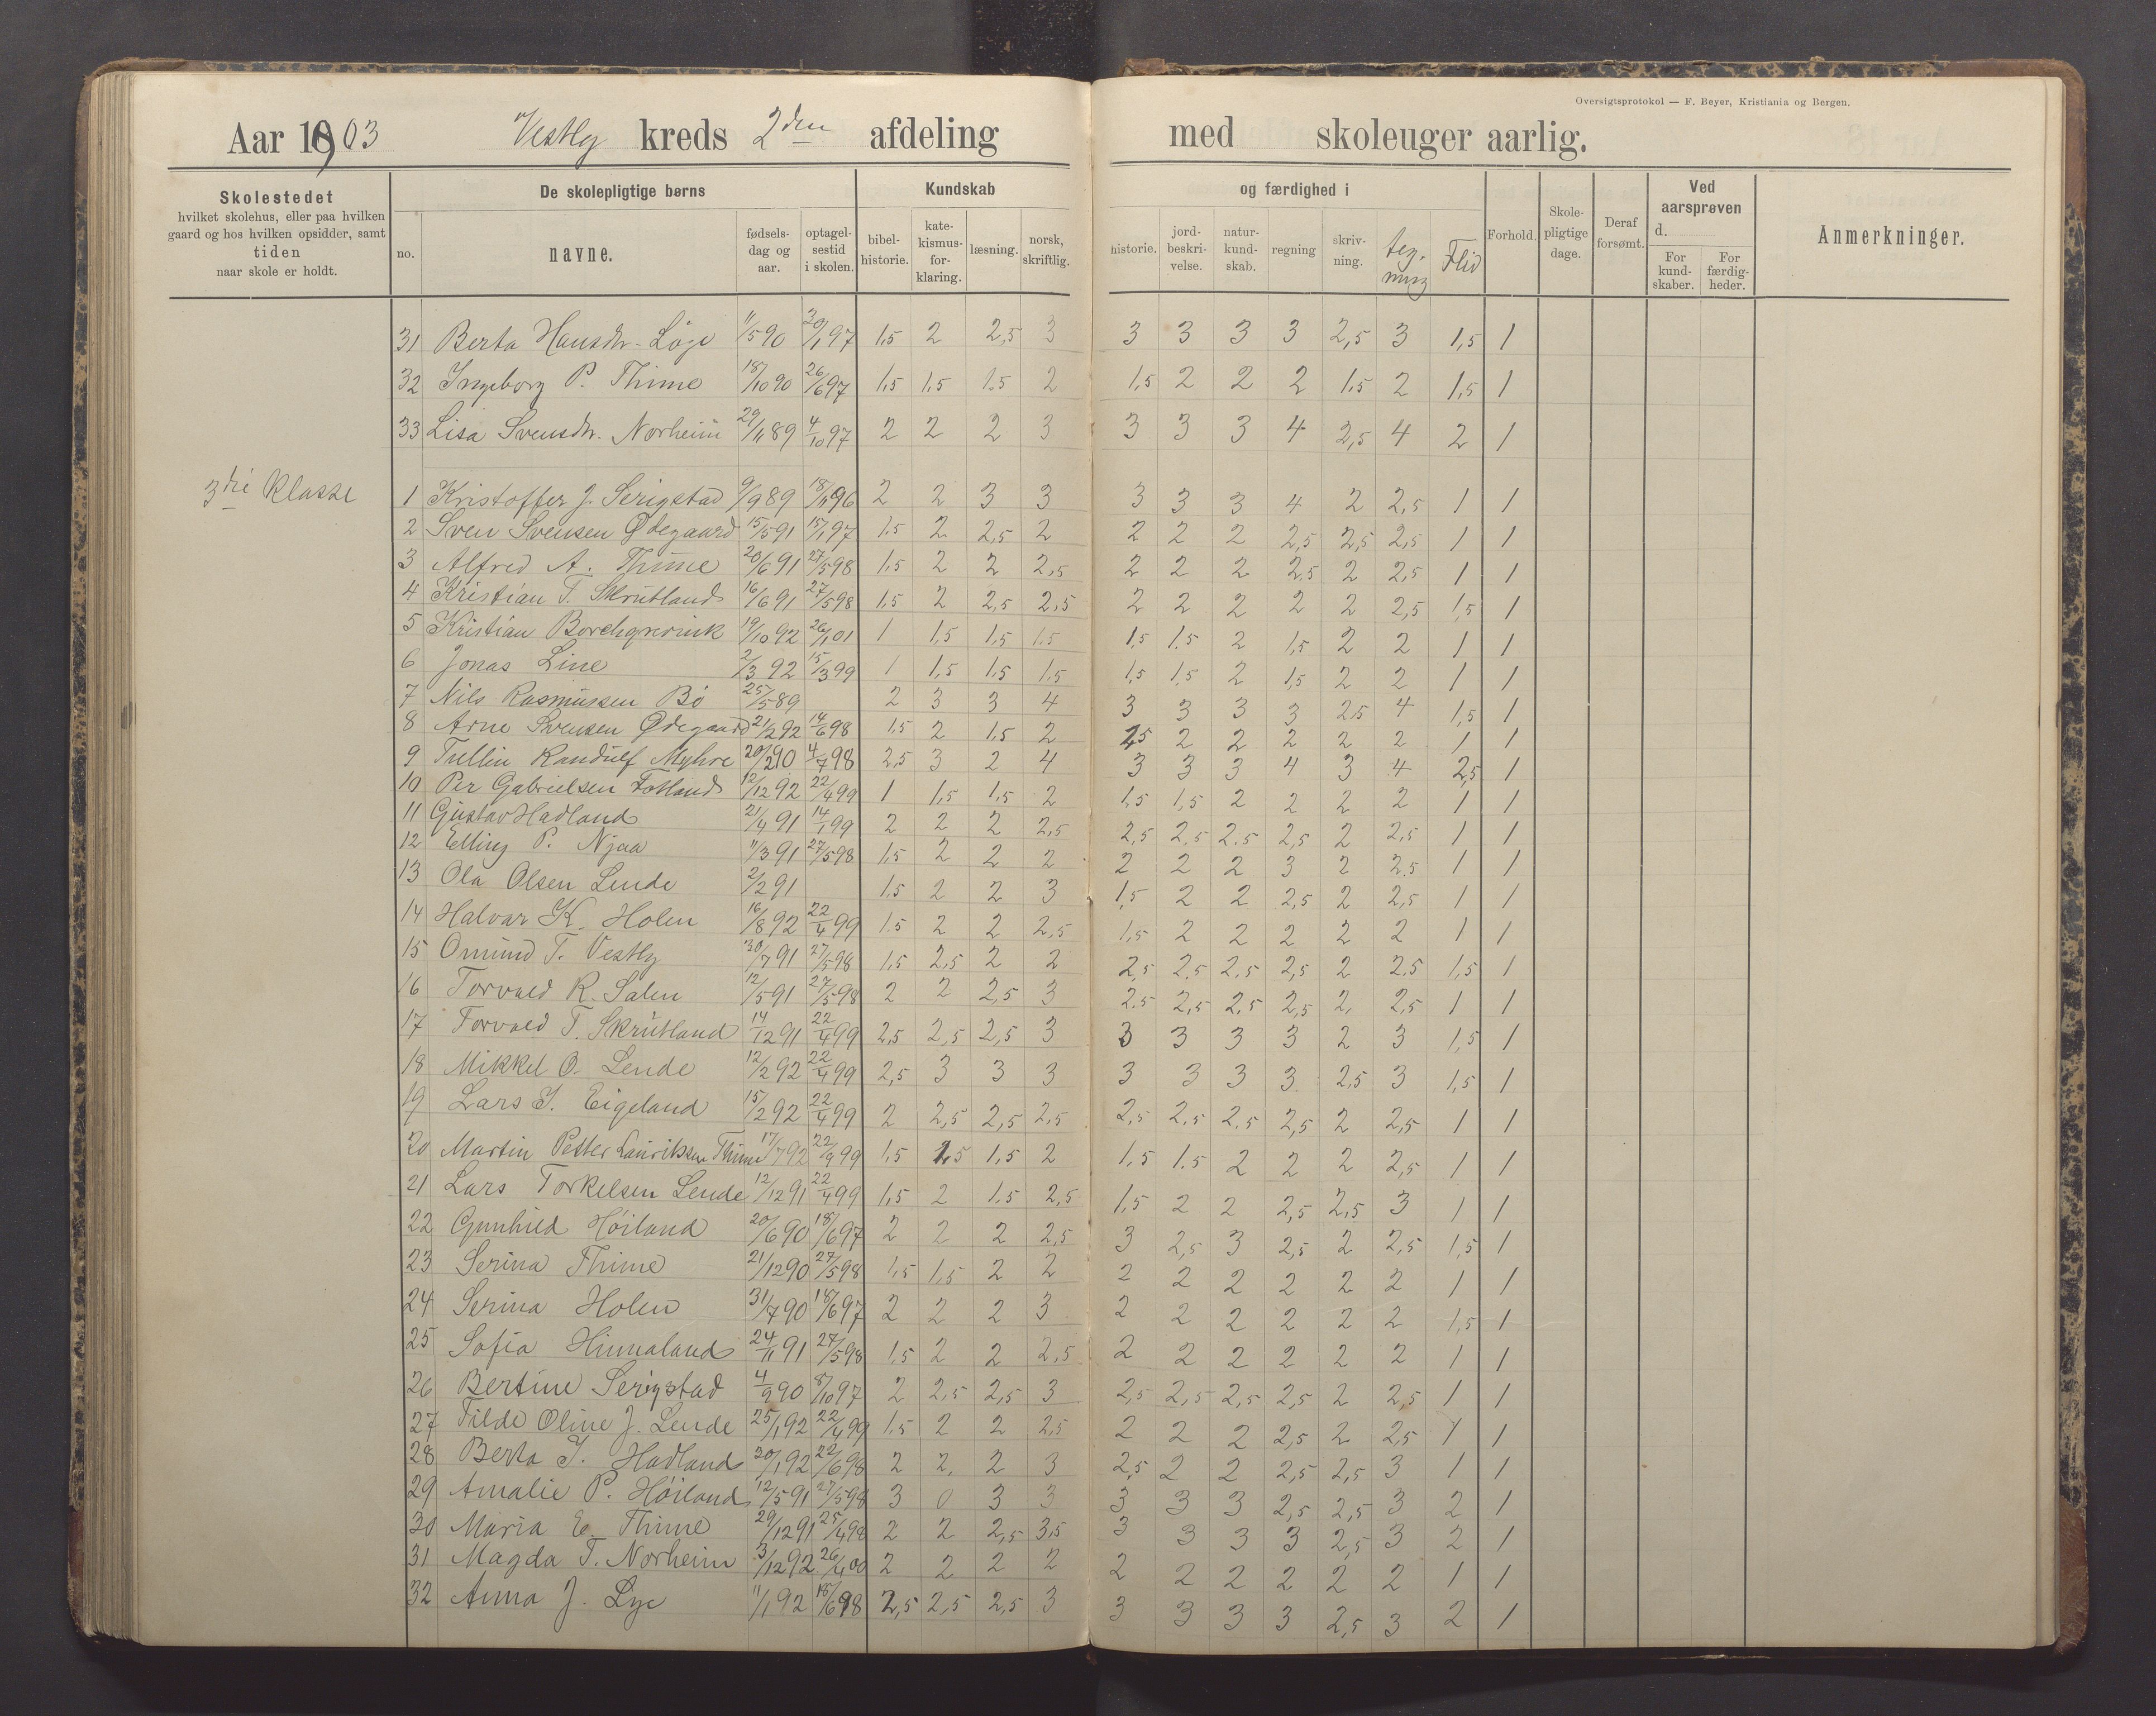 Oversigtsprotokol — F. Beyer, Kristiania og Bergen.
Aar 1903 Vestly kreds 2den afdeling med skoleuger aarlig.
Skolestedet hvilket skolehus, eller paa hvilken gaard og hos hvilken opsidder, samt tiden naar skole er holdt.
De skolepligtige børns
no. navne. fødsels-dag og aar. optagel-sestid i skolen.
Kundskab og færdighed i
bibel-historie. kate-kismus-for-klaring. læsning. norsk, skriftlig. historie. jord-beskri-velse. natur-kund-skab. regning skriv-ning. tegning Flid
Forhold. Skole-pligtige dage. Deraf forsømt. Ved aarsprøven d. For kund-skaber. For færdig-heder. Anmerkninger.
31 Berta Hansdtr. Løge 11/5 90 20/1 97 1,5 2 2,5 3 3 3 3 3 2,5 3 1,5 1
32 Ingeborg P. Thime 18/10 90 26/6 97 1,5 1,5 1.5 2 1,5 2 2 2 1.5 2 1,5 1
33 Lisa Svensdtr. Norheim 29/11 89 4/10 97 2 2 2 3 3 3 3 4 2,5 4 2 1
3die Klasse
1 Kristoffer J. Serigstad 9/9 89 18/11 96 2 2 3 3 3 3 3 4 2 2,5 1 1
2 Sven Svensen Ødegaard 15/5 91 15/1 97 1.5 2 2,5 2 2 2 2 2,5 2,5 2,5 1 1
3 Alfred A. Thime 20/6 91 27/5 98 1,5 2 2 2,5 2 2 2 2.5 2 2,5 1 1
4 Kristian T. Skrutland 16/6 91 27/5 98 1,5 2 2,5 2,5 2 2 2 2 2 2,5 1,5 1
5 Kristian Borchgrevink 19/10 92 26/1 01 1 1,5 1,5 1.5 1,5 1.5 2 1,5 2 2 1 1
6 Jonas Line 2/3 92 15/3 99 1 1,5 1,5 1.5 1,5 1,5 2 1,5 2 2 1 1
7 Nils Rasmussen Bö 25/5 89 2 3 3 4 3 3 3 3 2.5 4 1,5 1
8 Arne Svensen Ødegaard 21/2 92 14/6 98 1,5 2 1.5 2 2,5 2 2 2 2 2 1 1
9 Tullin Randulf Myhre 20/2 90 4/7 98 2,5 3 2 4 3 3 3 4 3 4 2,5 1
10 Per Gabrielsen Fotland 12/12 92 22/4 99 1 1,5 1,5 2 1,5 1,5 2 2 2 2 1 1
11 Gustav Hadland 21/4 91 14/1 99 2 2 2 2,5 2,5 2,5 2.5 2,5 2 2,5 1 1
12 Elling P. Njaa 11/3 91 27/5 98 1,5 2 2 2 2 2 2 3 2 2.5 1 1
13 Ola Olsen Lende 2/2 91 1.5 2 2 3 1,5 2 2 2,5 2 2,5 1 1
14 Halvar K. Holen 16/8 92 22/4 99 1.5 2 2 2,5 1,5 2 2 2 2 2 1 1
15 Omund T. Vestly 30/7 91 27/5 98 1,5 2,5 2 2 2,5 2.5 2,5 2,5 2 2,5 1,5 1
16 Torvald R. Salen 12/5 91 27/5 98 2 2 2,5 3 2,5 2,5 2,5 2,5 2, 2,5 1 1
17 Torvald T. Skrutland 14/12 91 22/4 99 2,5 2,5 2,5 3 3 3 3 3 2 3 1,5 1
18 Mikkel O. Lende 12/2 92 22/4 99 2,5 3 3 3 3 3 3 3. 2,5 3 1,5 1
19 Lars I. Eigeland 15/2 92 22/4 99 2 2,5 2,5 2,5 2,5 2,5 2,5 2,5 2 2,5 1 1
20 Martin Petter Lauritssen Thime 17/7 92 22/4 99 1,5 1,5 1,5 2 1,5 1.5 2 2 2 2,5 1 1
21 Lars Torkelsen Lende 12/12 91 22/4 99 1,5 2 1.5 2,5 1,5 2 2 2,5 2,5 3 1 1
22 Gunhild Høiland 20/6 90 18/6 97 2 2 2 2,5 3 2,5 3 2,5 2 2,5 1,5 1
23 Serina Thime 21/12 90 27/5 98 1,5 1,5 2 2 2 2 2 2 2 2 1 1
24 Serina Holen 31/7 90 18/6 97 2 2 2 3 2 2 2 2 2 2 1,5 1
25 Sofia Hinnaland 24/11 91 27/5 98 1,5 2 2 2,5 2 2 2 2 2 2 1 1
26 Bertine Serigstad 4/9 90 8/10 97 2 2,5 2,5 3 2,5 2,5 2,5 2,5 2 2,5 1 1
27 Tilde Oline J. Lende 25/1 92 22/4 99 1.5 2 2 2,5 2 2 2 2,5 2 2,5 1 1
28 Berta I. Hadland 30/1 92 22/6 98 2 2, 2 3 2,5 2 2 2,5 2,5 3 1 1
29 Amalie P. Høiland 12/5 91 27/5 98 3 0 3 3 3 3 3 2,5 2,5 3 2 1
30 Maria E. Thime 29/12 91 25/4 98 2 2 2,5 3,5 3 3 3 3 2,5 3 2 1
31 Magda T. Norheim 3/12 92 26/4 00 2 2 2 2 2 2 2 2 2 2 1 1
32 Anna J. Lye 11/1 92 18/6 98 2,5 2,5 2,5 3 3 3 3 3 2,5 3 2 1